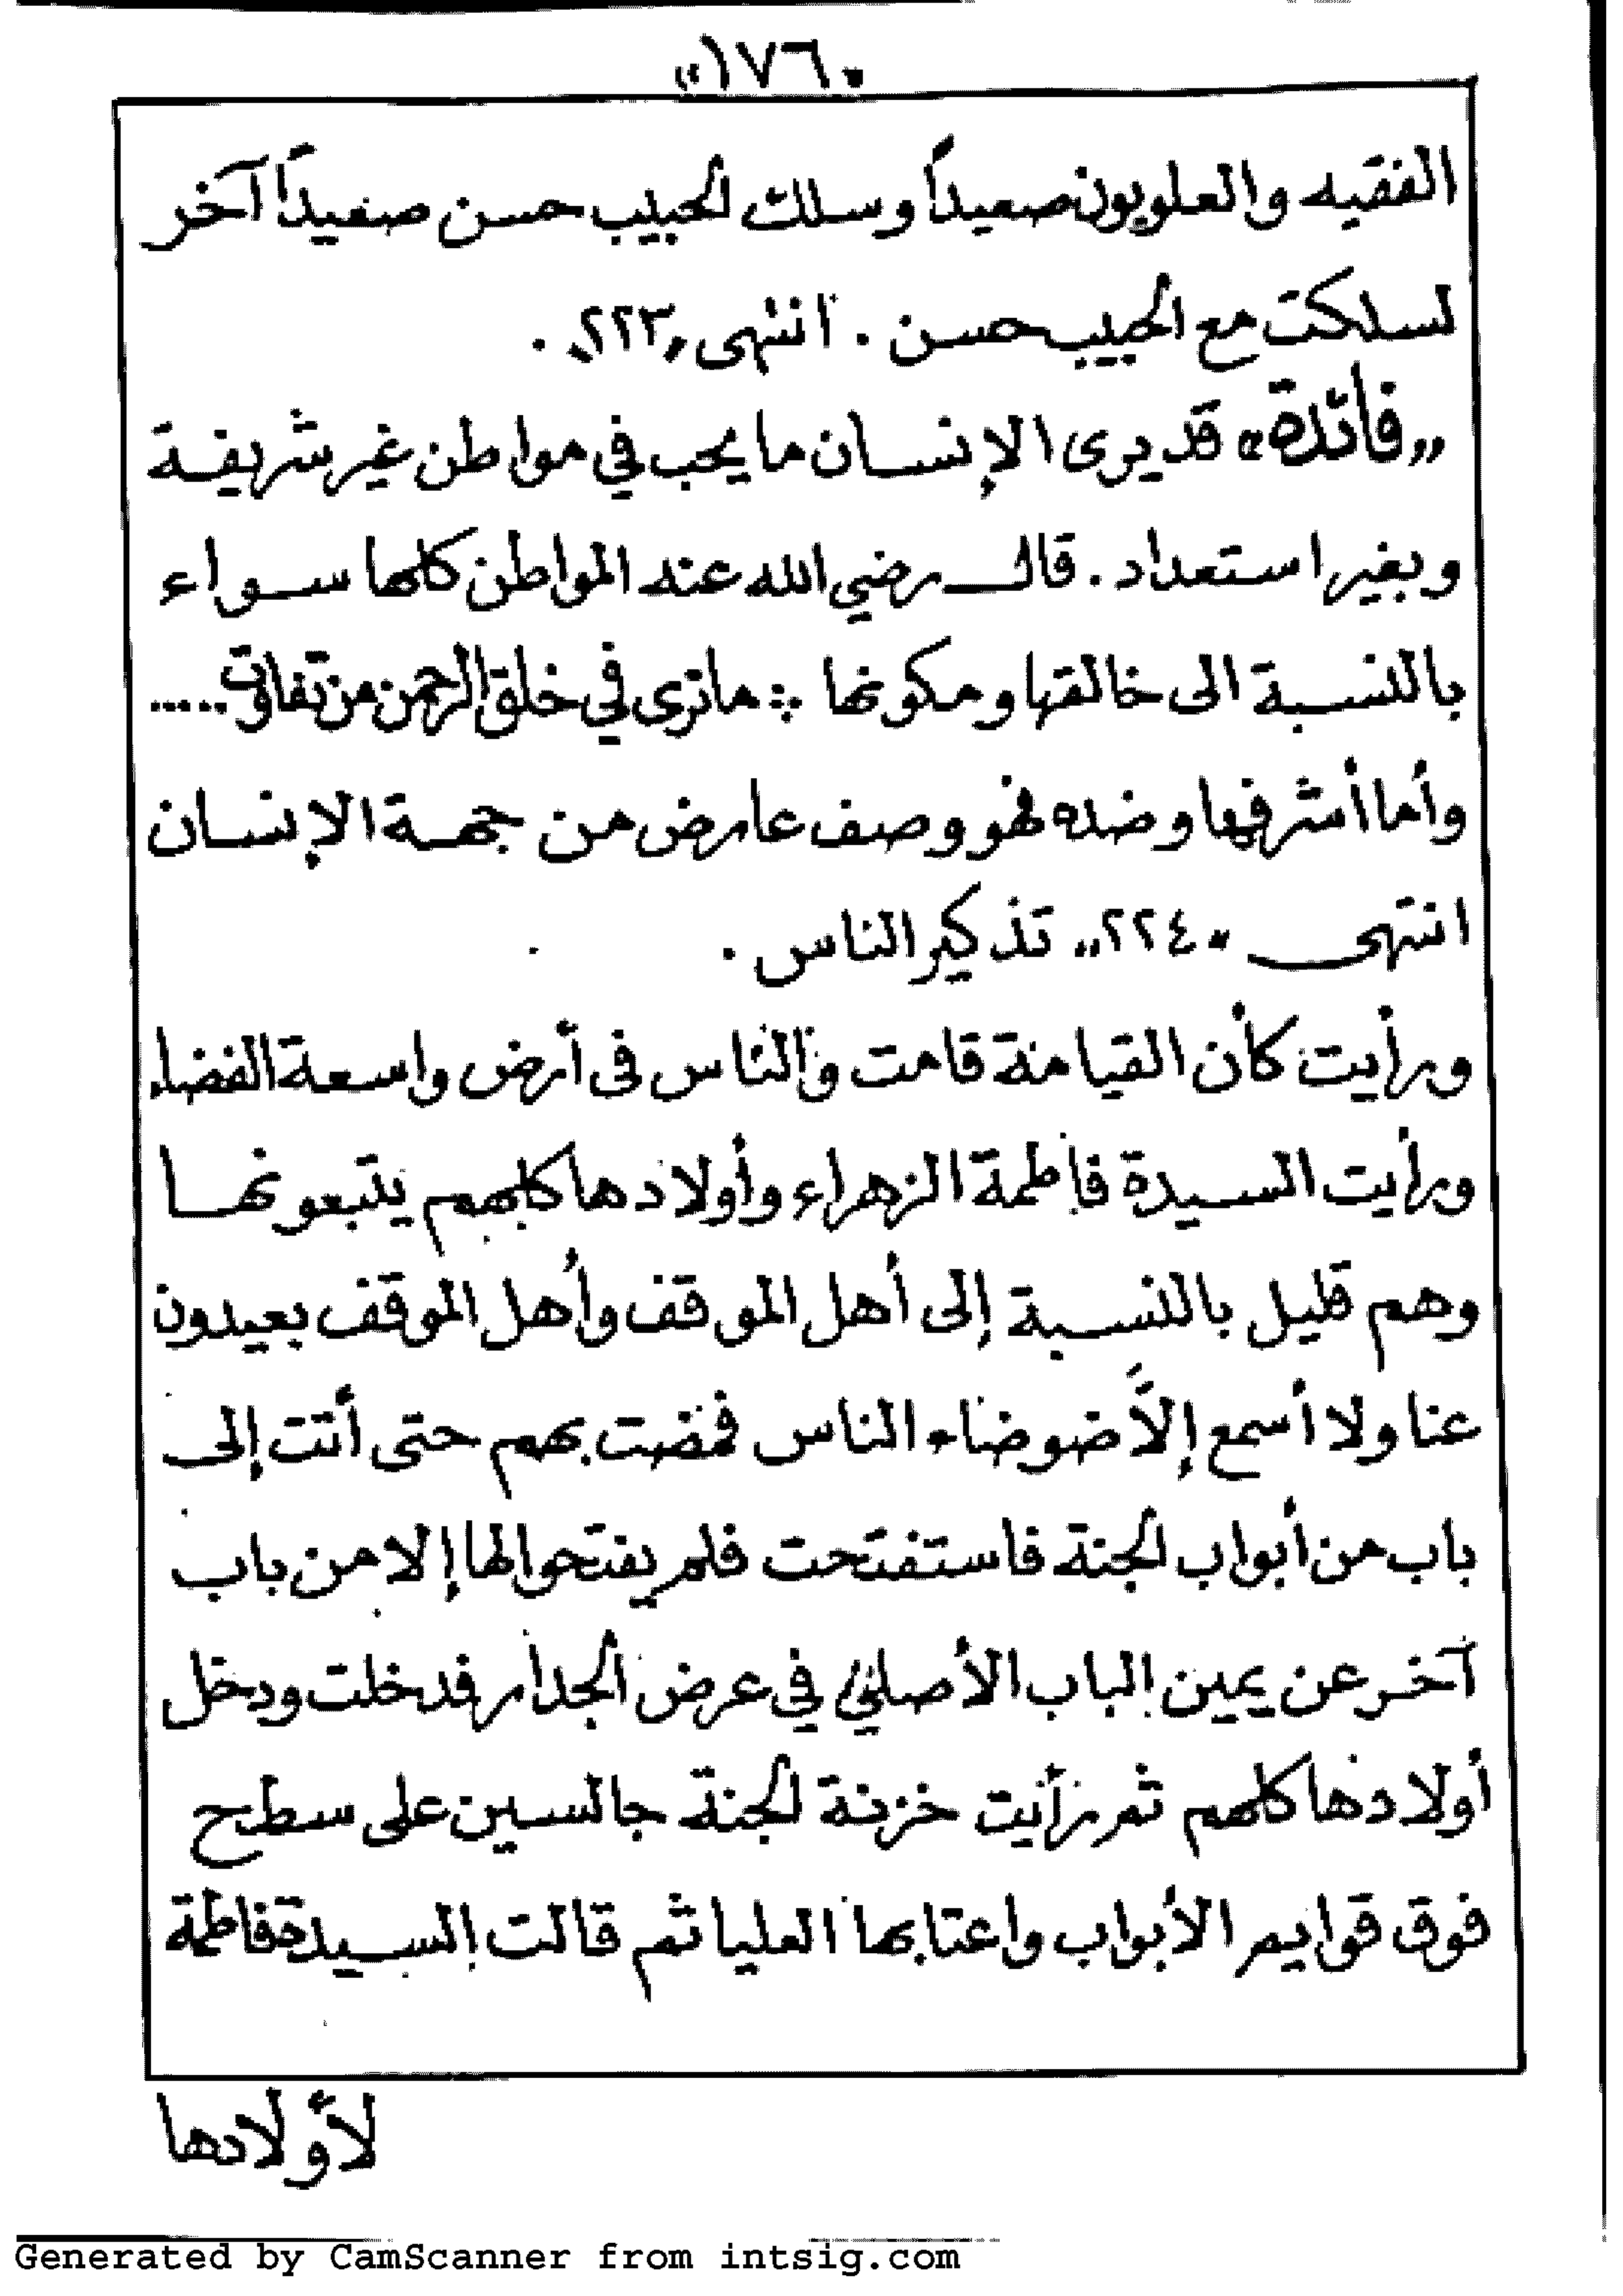 «١٧٦»
الفقيه والعلويون صعيداً وسلك الحبيب حسن صعيداً آخر
لسلكت مع الحبيب حسن . انتهى «٢٢٣» .
«فائدة» قد يرى الإنسان ما يحب في مواطن غير شريفة
وبغير استعداد . قال رضي الله عنه المواطن كلها سواء
بالنسبة الى خالقها ومكونها ※ ماترى في خلق الرحمن من تفاوت .....
وأما أشرفها وضده فهو وصف عارض من جهة الإنسان
انتهى «٢٢٤» تذكير الناس .
ورأيت كأن القيامة قامت والناس فى أرض واسعة الفضاء
ورأيت السيدة فاطمة الزهراء وأولادها كلهم يتبعونها
وهم قليل بالنسبة إلى أهل الموقف وأهل الموقف بعيدون
عنا ولا أسمع إلاَّ ضوضاء الناس فمضت بهم حتى أتت إلى
باب من أبواب الجنة فاستفتحت فلم يفتحوا لها إلا من باب
آخر عن يمين الباب الأصلي في عرض الجدار فدخلت ودخل
أولادها كلهم ثم رأيت خزنة الجنة جالسين على سطح
فوق قوايم الأبواب واعتابها العليا ثم قالت السيدة فاطمة
لأولادها
Generated by CamScanner from intsig.com